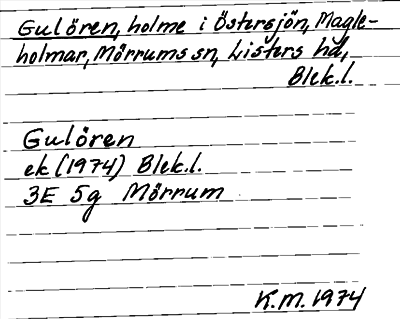 Gulören, holme i Östersjön, Magle-
holmar, Mörrums sn, Listers hd,
Blek.l.
Gulören
ek (1974) Blek.l.
3E 5g Mörrum
K.M. 1974